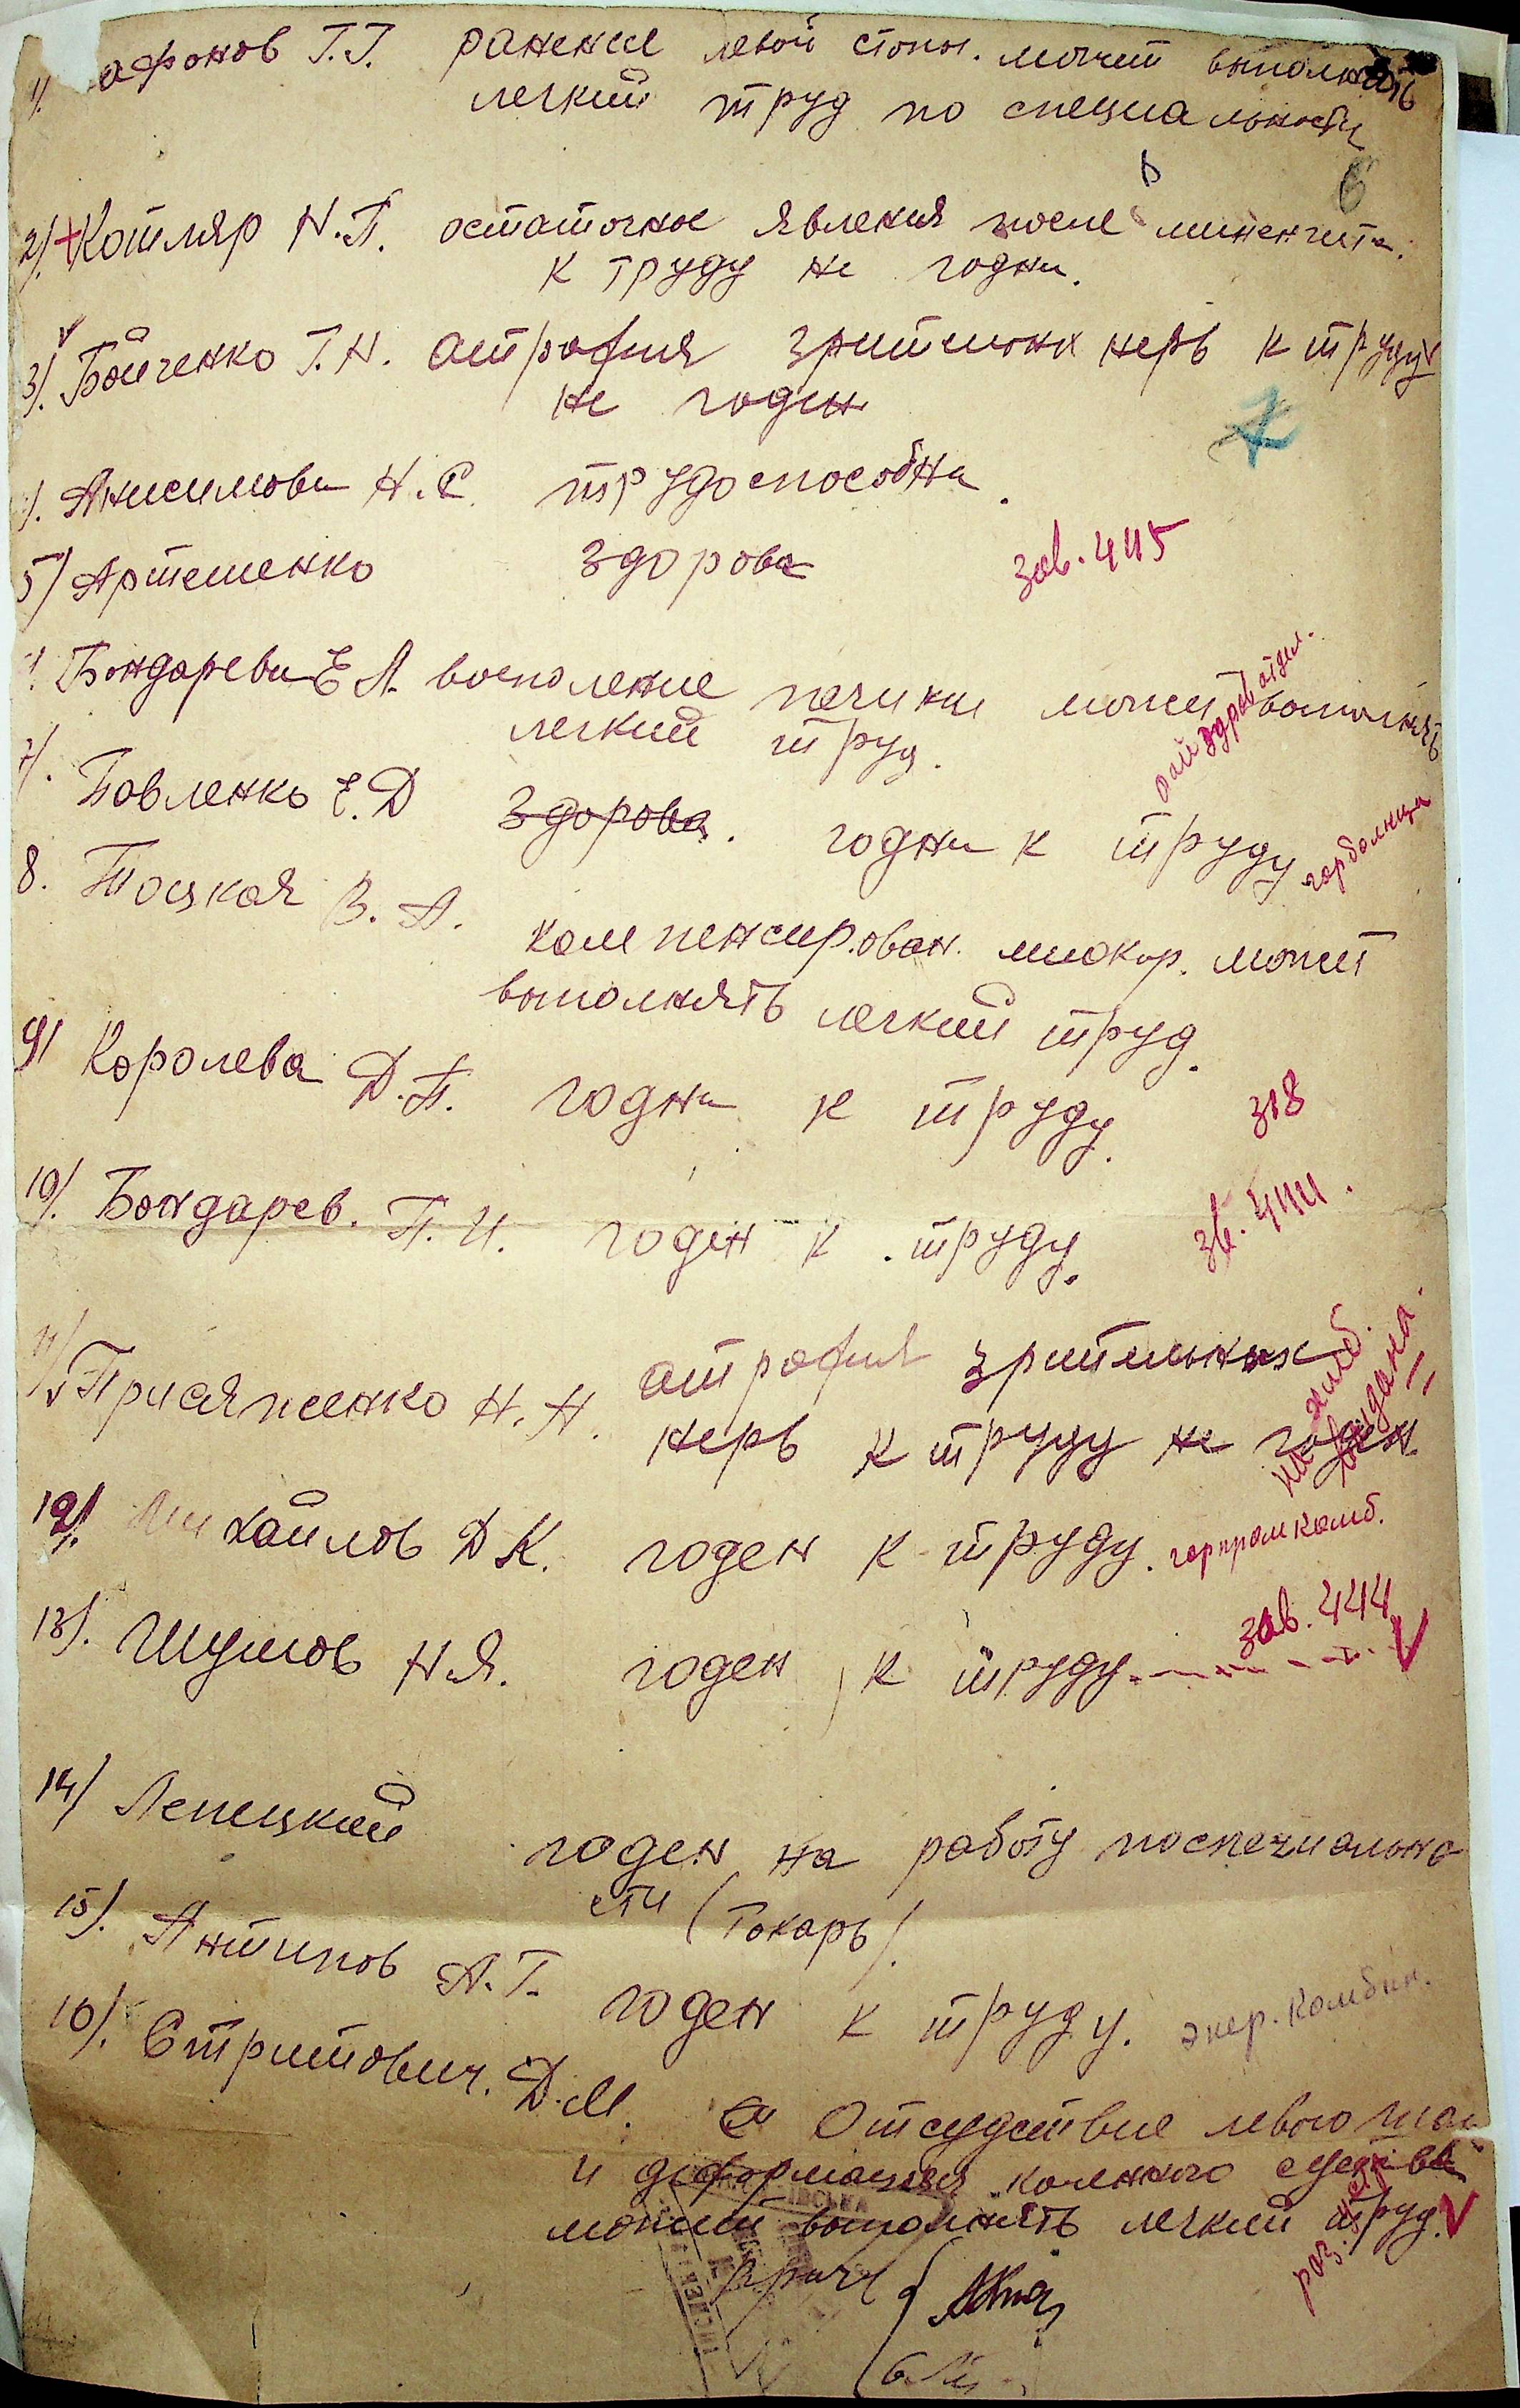 1. афонов Г.Г. ранение левой стопы. может выполнять
легкий труд по специальности
6
2). + Котляр Н.П. остаточное явления после миненгита.
к труду не годна.
3). Бойченко Г.Н. атрофия зрительных нерв к труду
не годен
7
). Анисимова Н.С. трудоспособна.
5) Артеменко здорова зав. 445
). Бондарева Е А. восполение печики может выполнять
легкий труд.
рай здрав отдел.
7). Повленко Е.Д здорова. годна к труду горболница
8. Тоцкая В.А. компенсирован. миокар. может
выполнять легкий труд.
9) Королева Д.П. годна к труду. 318
10). Бондарев. П.И. годен к труду. зв. 444.
11) v Присяженко Н.Н. атрофия зрительных
нерв к труду не годен.
12). Михайлов Д К. годен к труду. горпромкомб.
13). Шумов Н.Я. годен к труду. зав. 444 V
14) Лепецкий годен на работу поспечиально
сти (Токарь).
15). Антипов А.Г. годен к труду. экер. Комбин.
16). Стритович. Д.М. Отсудствие левого
и деформация коленного
может выполнять легкий труд. V
Врачи